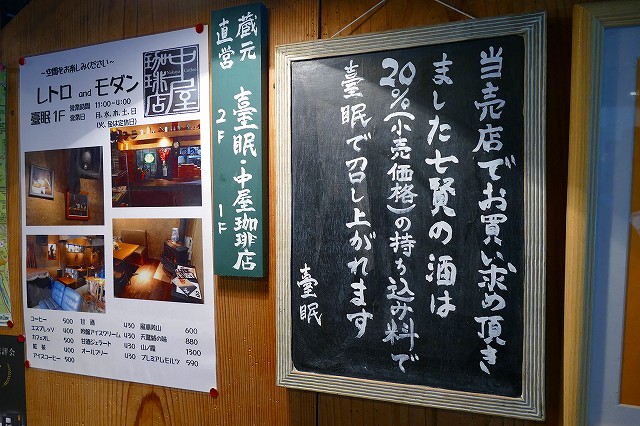 ～空間をお楽しみください～
レトロ and モダン
臺眠 1F
営業時間 11:00～
営業日
中屋
珈琲店
コーヒー 500
エスプレッソ 400
カフェオレ 500
紅茶 400
アイスコーヒー 500
甘酒 430
吟醸アイスクリーム 430
甘酒ジェラート 430
オールフリー 430
風凛美山 600
天鵞絨の味 880
山ノ霞 1300
プレミアムモルツ 590
蔵元
直営
臺眠・中屋珈琲店
2F
1F
当売店でお買い求め頂き
ました七賢の酒は
20％(小売価格)の持ち込み料で
臺眠で召し上がれます
臺眠